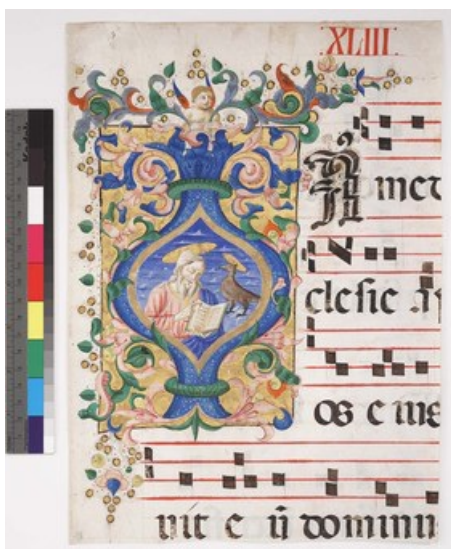 XLIII
N med
clesie ap
os e ius
uit e ū dominu